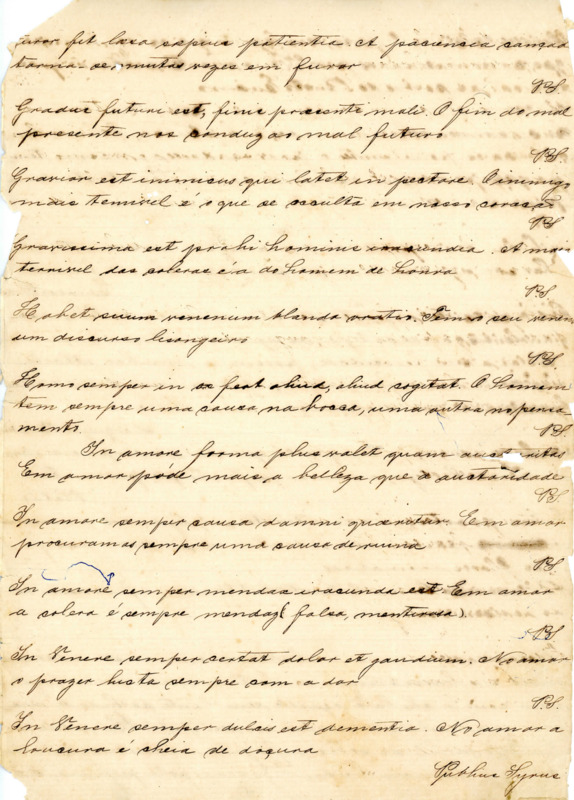 Furor fit lasa sepius patientia. A paciencia cançada
torna-se muitas vezes em furor
P.S.
Gradus futuri est, finis presente mali. O fim do mal
presente nos conduz ao mal futuro
P.S.
Gravior est inimicus qui latet in pectore. O inimigo
mais temivel é o que se occulta em nosso coração
P.S.
Gravissima est probi hominis iracundia. A mais
terrivel das coleras é a do homem de honra
P.S.
Habet suum venenum blanda oratio. Tem o seu veneno
um discurso lisongeiro
P.S.
Homo semper in os fert aliud, aliud cogitat. O homem
tem sempre uma cousa na bocca, uma outra no pensa
mento.
P.S.
In amore forma plus valet quam auctoritas
Em amor póde mais a belleza que a auctoridade
P.S.
In amore semper causa damni quaeritur. Em amor
procuramos sempre uma causa de ruina
P.S.
In amore semper mendax iracundia est Em amor
a colera é sempre mendaz (falsa, mentirosa)
P.S.
In Venere semper certat dolor et gaudium. No amor
o prazer lucta sempre com a dor
P.S.
In Venere semper dulcis est dementia. No amor a
loucura é cheia de doçura
Publius Syrus